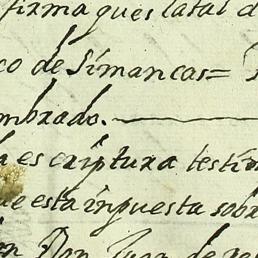 firma ques latal d
co de Simancas=
mbrado.
a escriptura testi
ue esta inpuesta sobr
on Don Juan de